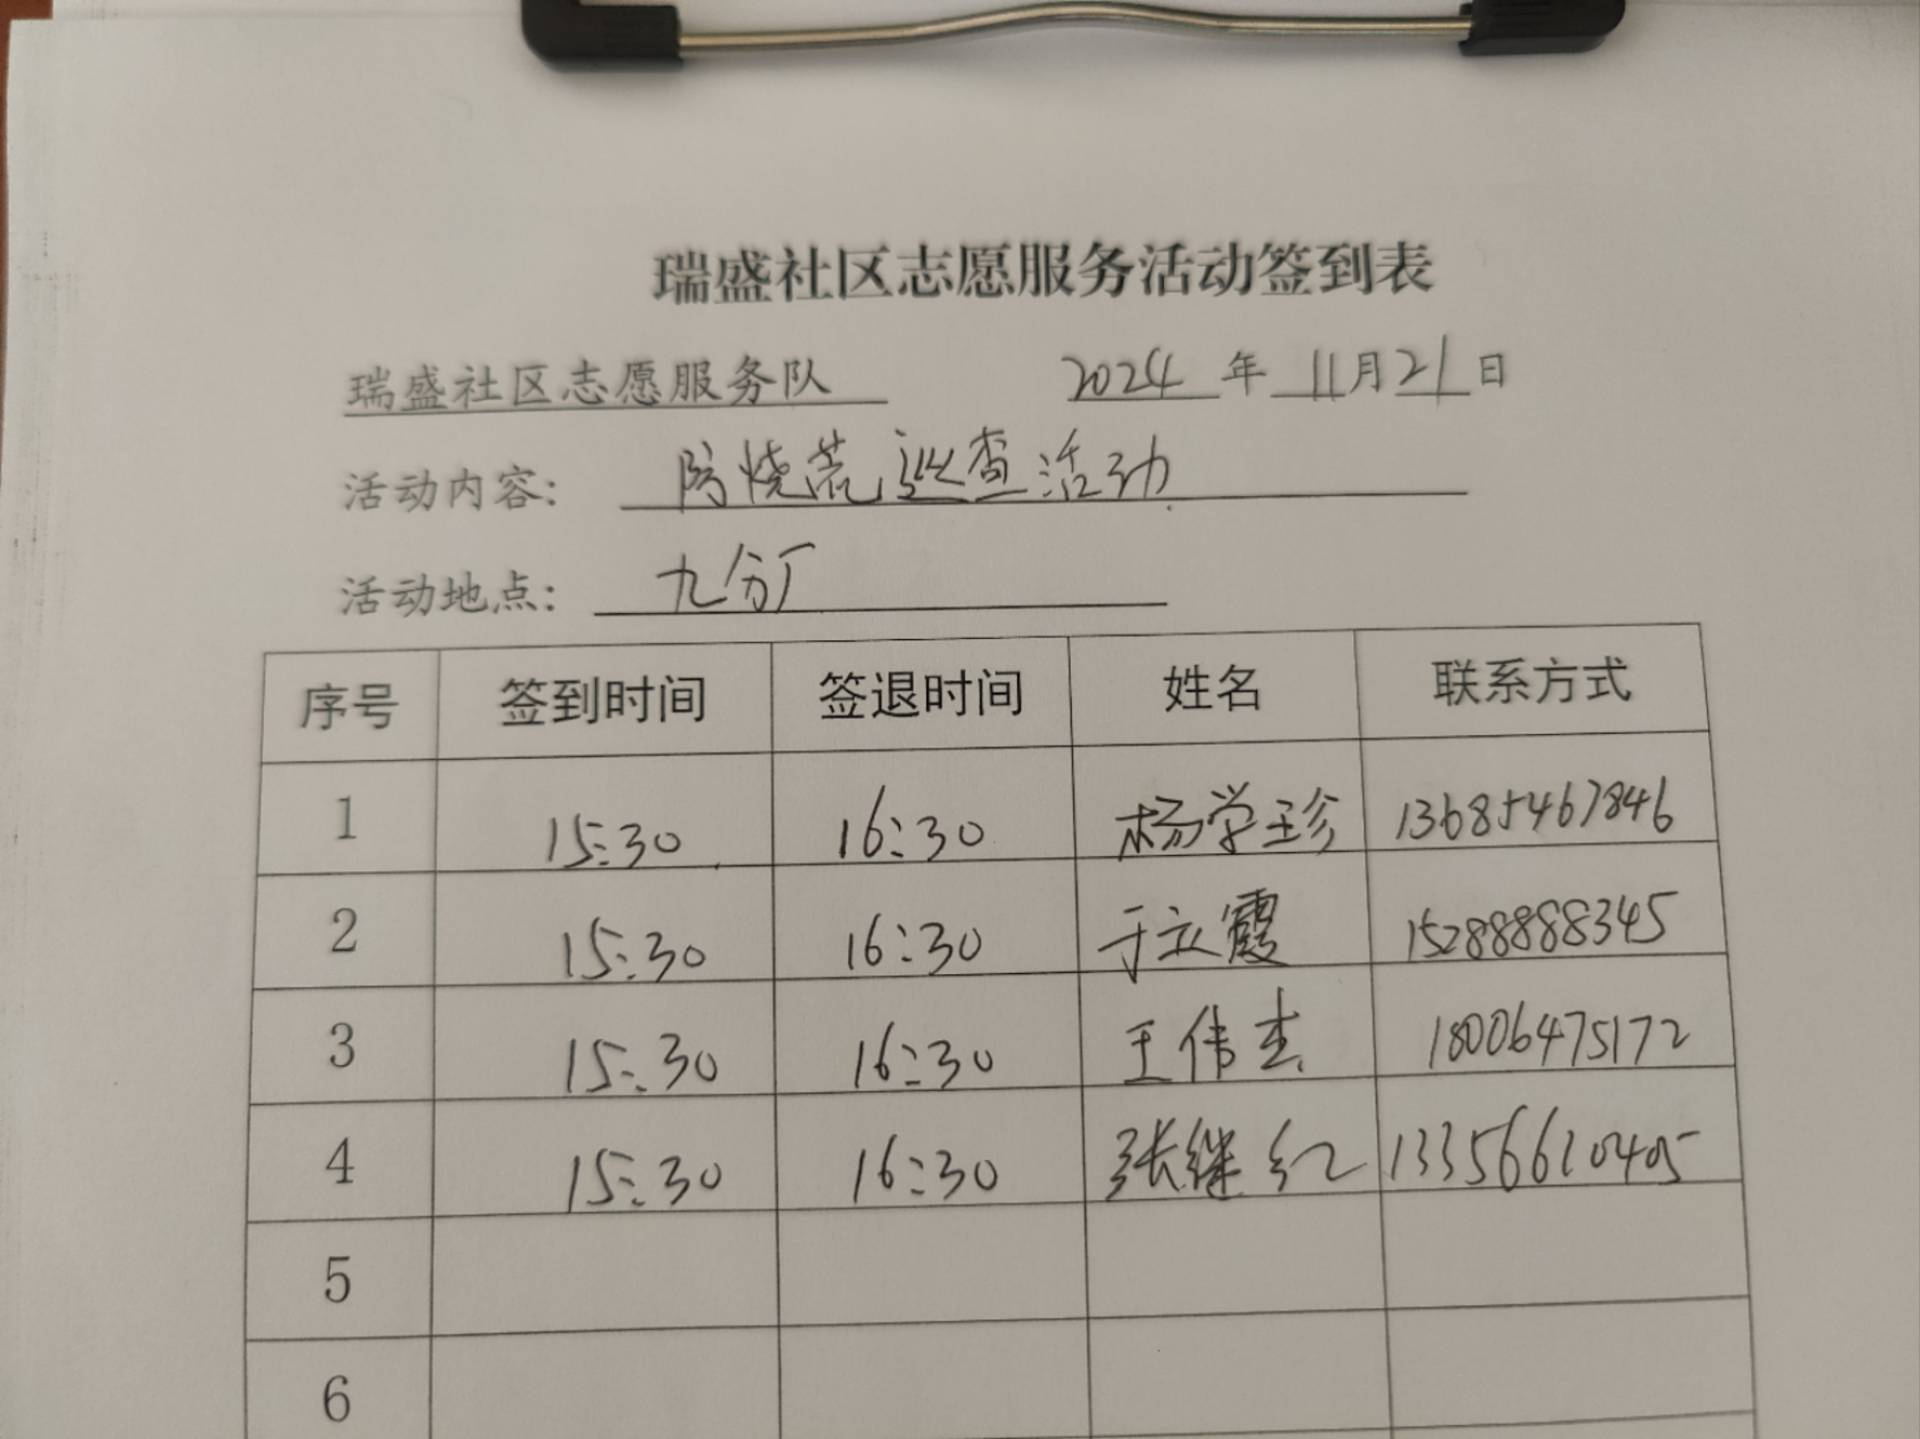 瑞盛社区志愿服务活动签到表
瑞盛社区志愿服务队 2024 年 11月21日
活动内容: 防烧荒巡查活动
活动地点: 九分厂
序号 签到时间 签退时间 姓名 联系方式
1 15:30 16:30 杨学珍 13685467846
2 15:30 16:30 于立霞 15288888345
3 15:30 16:30 王伟杰 18006475172
4 15:30 16:30 张继红 13356610405
5
6